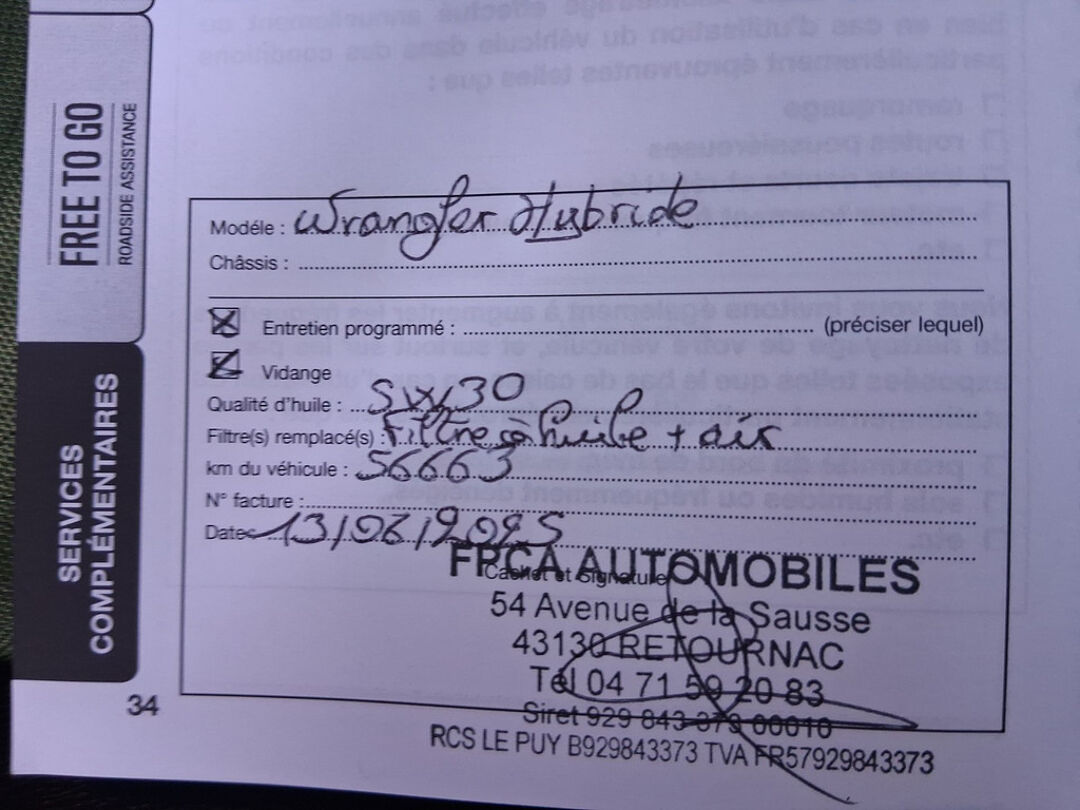 FREE TO GO
ROADSIDE ASSISTANCE
SERVICES
COMPLÉMENTAIRES
Modèle : Wrangler Hybride
Châssis :
Entretien programmé : (préciser lequel)
Vidange
Qualité d'huile : 5W30
Filtre(s) remplacé(s) : Filtre à huile + air
km du véhicule : 56663
N° facture :
Date 13/06/2025
Cachet et Signature
FPCA AUTOMOBILES
54 Avenue de la Sausse
43130 RETOURNAC
Tél 04 71 59 20 83
Siret 929 843 373 00010
RCS LE PUY B929843373 TVA FR57929843373
34